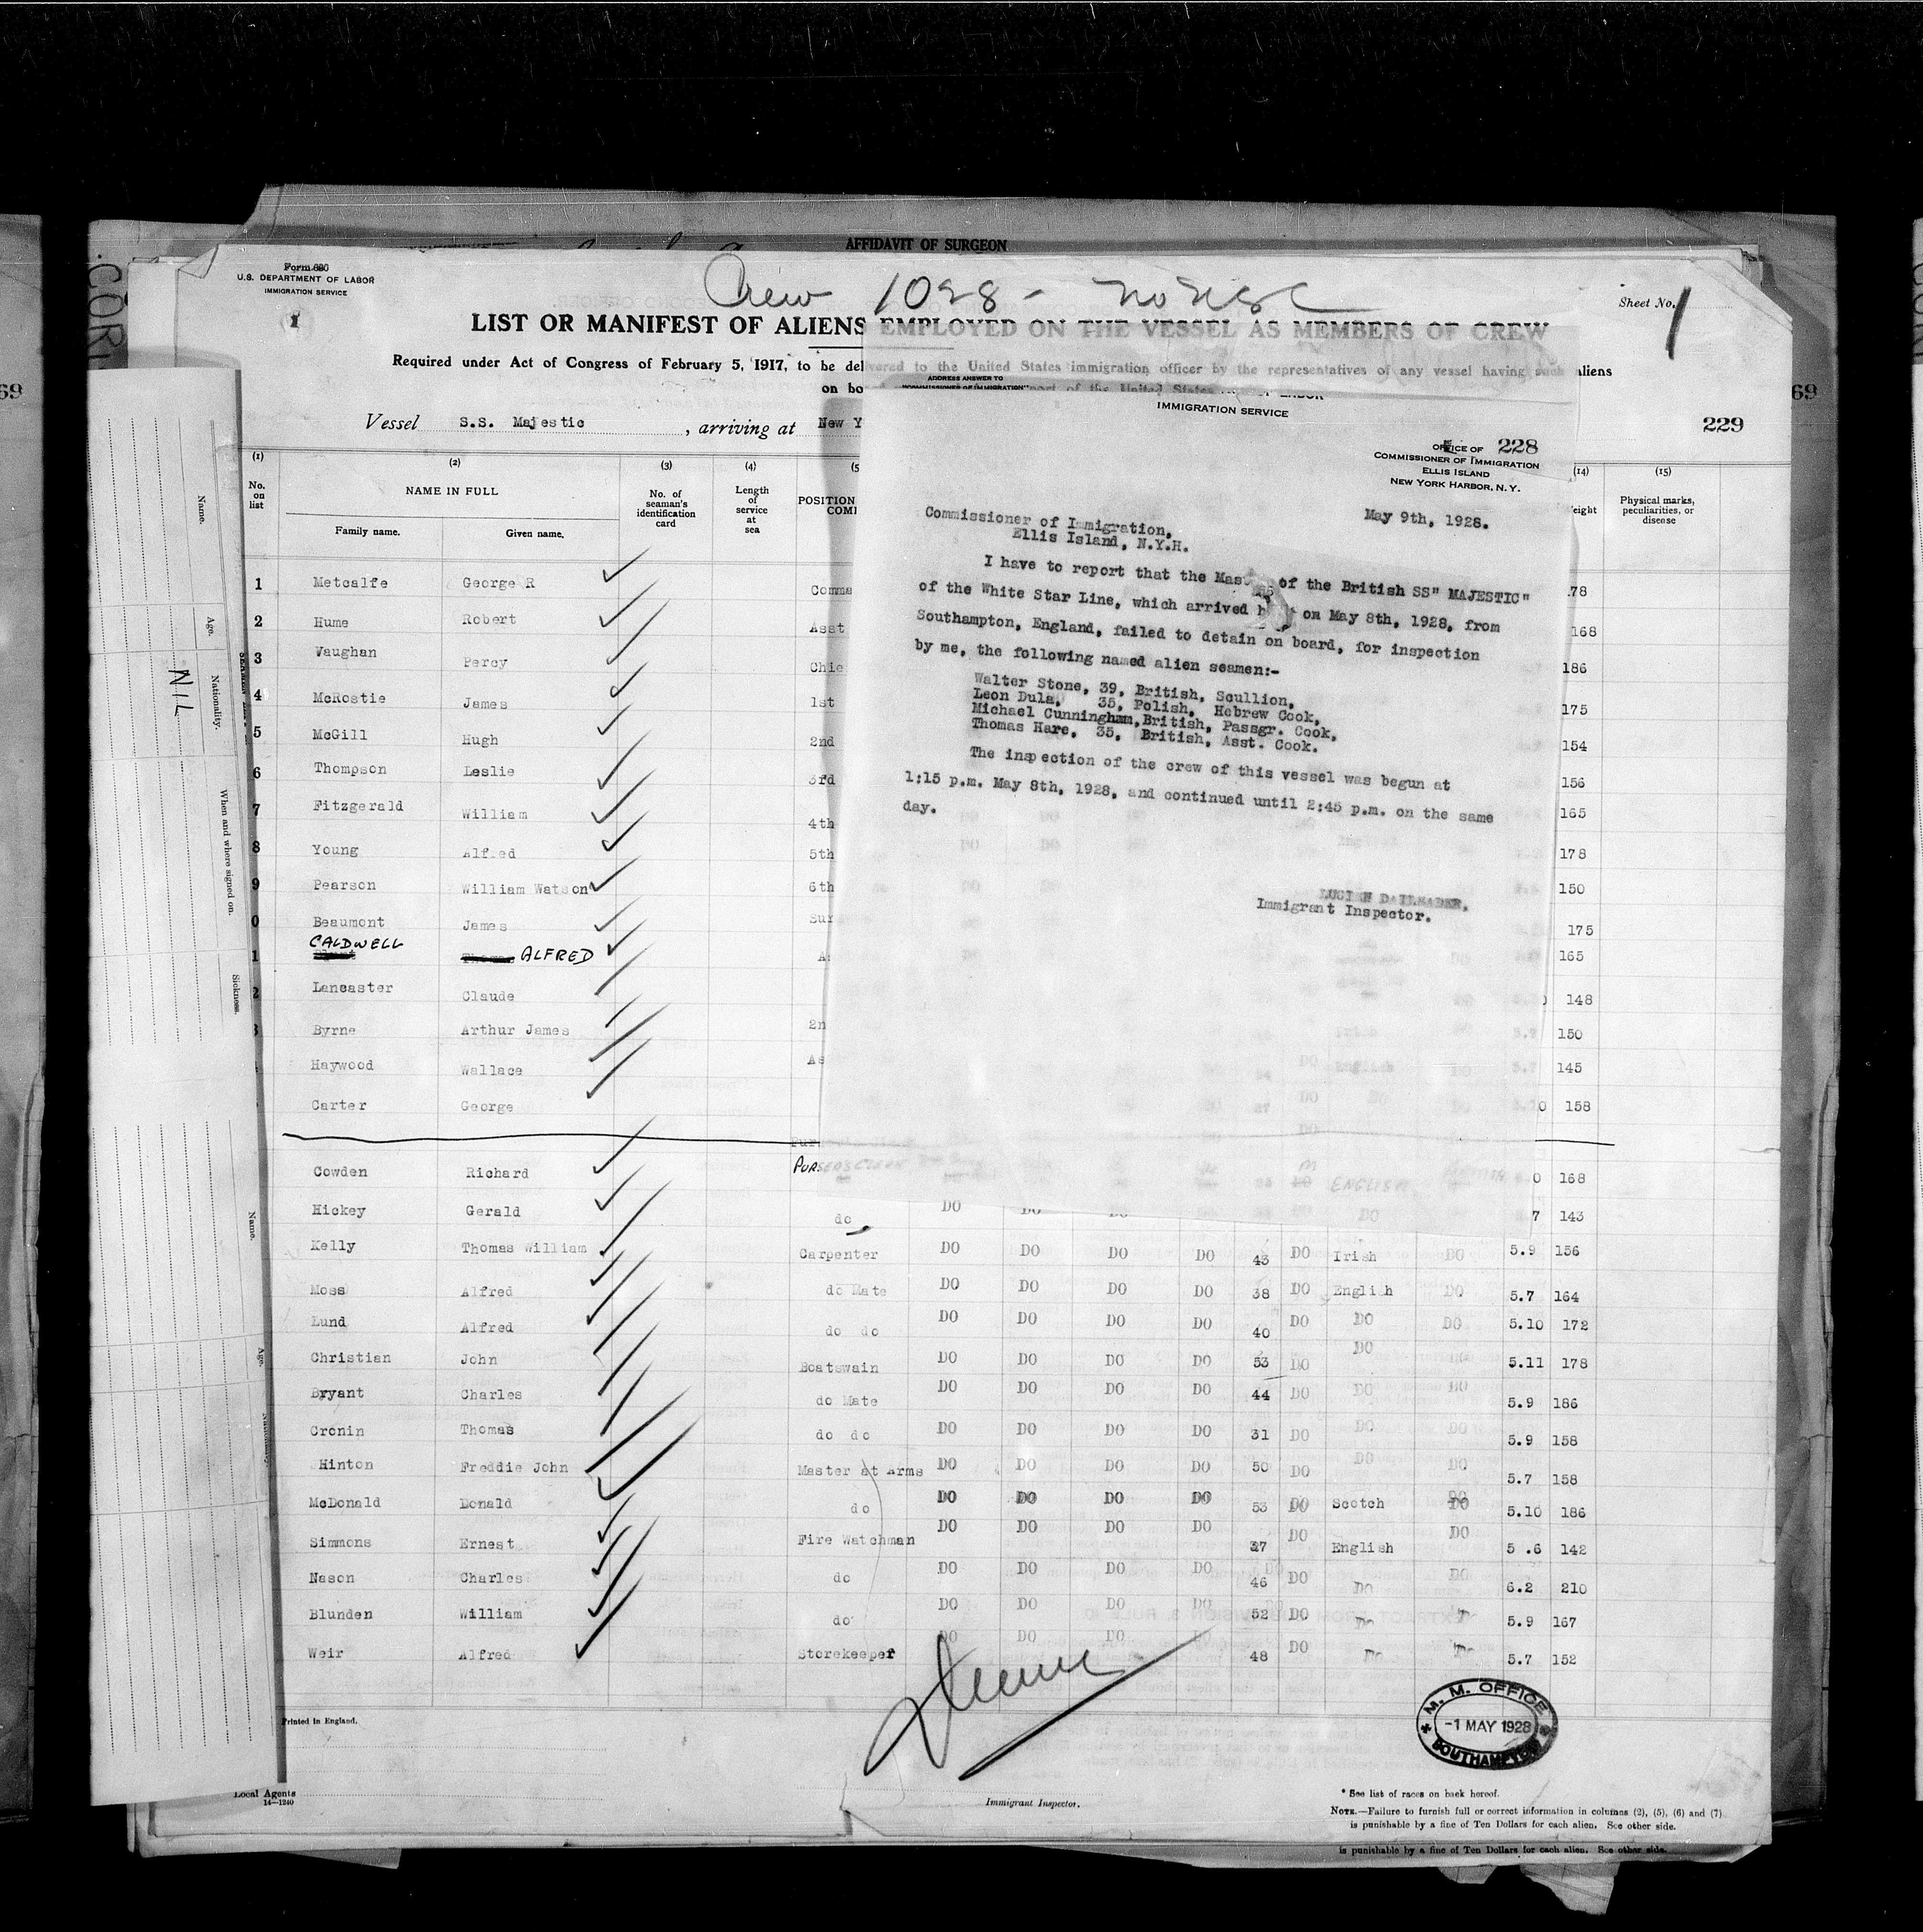 AFFIDAVIT OF SURGEON
Form 680
U.S. DEPARTMENT OF LABOR
IMMIGRATION SERVICE
1
Crew 1028 -
Sheet No. 1
LIST OR MANIFEST OF ALIENS EMPLOYED ON THE VESSEL AS MEMBERS OF CREW
Required under Act of Congress of February 5, 1917, to be delivered to the United States immigration officer by the representatives of any vessel having such aliens
on bo port of the United States
Vessel S.S. Majestic, arriving at New Y
229
69
69
ADDRESS ANSWER TO
"COMMISSIONER OF IMMIGRATION"
LABOR
IMMIGRATION SERVICE
OFFICE OF 228
COMMISSIONER OF IMMIGRATION
ELLIS ISLAND
NEW YORK HARBOR, N.Y.
May 9th, 1928.
Commissioner of Immigration,
Ellis Island, N.Y.H.
I have to report that the Mas of the British SS" MAJESTIC"
of the White Star Line, which arrived on May 8th, 1928, from
Southampton, England, failed to detain on board, for inspection
by me, the following named alien seamen:-
Walter Stone, 39, British, Scullion,
Leon Dula, 35, Polish, Hebrew Cook,
Michael Cunningham, British, Passgr. Cook,
Thomas Hare, 35, British, Asst. Cook.
The inspection of the crew of this vessel was begun at
1:15 p.m. May 8th, 1928, and continued until 2:45 p.m. on the same
day.
LUCIEN DAILEADER,
Immigrant Inspector.
(1) (2) (3) (4) (5 (14) (15)
No. on list
NAME IN FULL
Family name. Given name.
No. of seaman's identification card
Length of service at sea
POSITION
COMP
eight
Physical marks, peculiarities, or disease
1 Metcalfe George R Comma 178
2 Hume Robert Asst 168
3 Vaughan Percy Chie 186
4 McRostie James 1st 175
5 McGill Hugh 2nd 154
6 Thompson Leslie 3rd 156
7 Fitzgerald William 4th 165
8 Young Alfred 5th 178
9 Pearson William Watson 6th 150
0 Beaumont James Sur 175
1 CALDWELL ALFRED A 165
2 Lancaster Claude 148
3 Byrne Arthur James 2n 150
Haywood Wallace As 145
Carter George 0 158
Cowden Richard PURSERS CLERK ENGLISH 0 168
Hickey Gerald do DO 7 143
Kelly Thomas William Carpenter DO DO DO DO 43 DO Irish DO 5.9 156
Moss Alfred do Mate DO DO DO DO 38 DO English DO 5.7 164
Lund Alfred do do DO DO DO DO 40 DO DO DO 5.10 172
Christian John Boatswain DO DO DO DO 53 DO DO DO 5.11 178
Bryant Charles do Mate DO DO DO DO 44 DO DO DO 5.9 186
Cronin Thomas do do DO DO DO DO 31 DO DO DO 5.9 158
Hinton Freddie John Master at Arms DO DO DO DO 50 DO DO DO 5.7 158
McDonald Donald do DO DO DO DO 53 DO Scotch DO 5.10 186
Simmons Ernest Fire Watchman DO DO DO DO 37 DO English DO 5 .6 142
Nason Charles do DO DO DO DO 46 DO Do DO 6.2 210
Blunden William do DO DO DO DO 52 DO Do 5.9 167
Weir Alfred Storekeeper DO DO DO 48 DO Do Do 5.7 152
Name.
Age.
Nationality.
NIL
When and where signed on.
Sickness.
Name.
Age.
M. M. OFFICE
-1 MAY 1928
SOUTHAMPTON
Printed in England.
Local Agents
14—1240
Immigrant Inspector.
* See list of races on back hereof.
NOTE.—Failure to furnish full or correct information in columns (2), (5), (6) and (7)
is punishable by a fine of Ten Dollars for each alien. See other side.
is punishable by a fine of Ten Dollars for each alien. See other side.